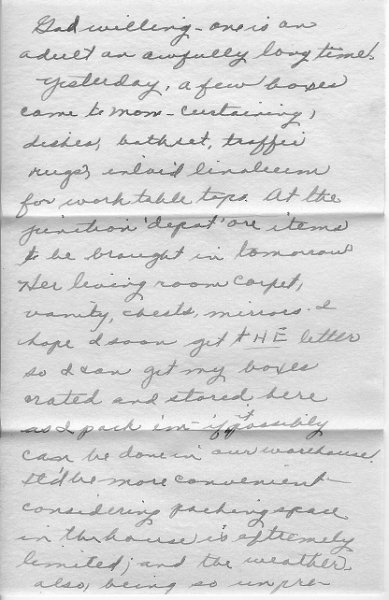 God willing - one is an
adult an awfully long time!
Yesterday, a few boxes
came to Mom - curtaining,
dishes, bathset, traffic
rugs, inlaid linoleum
for work table tops. At the
junction 'depot' are items
to be brought in tomorrow
Her living room carpet,
vanity, chests, mirrors. I
hope I soon get THE letter
so I can get my boxes
crated and stored here
as I pack 'em - if it possibly
can be done in our warehouse.
It'd be more convenient -
considering packing space
in the house is extremely
limited; and the weather
also, being so unpre-